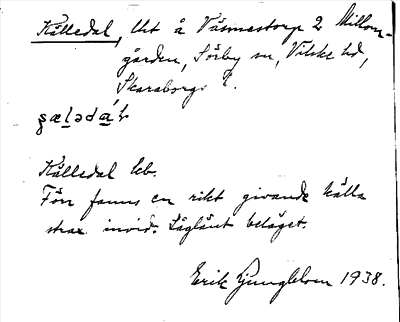 Källedal, lht å Väsmestorp 2 Mellom-
gården, Sörby sn, Vilske hd,
Skaraborgs l.
Källedal lb.
Förr fanns en rikt givande källa
strax invid. Låglänt beläget.
Erik Ljungblom 1938.